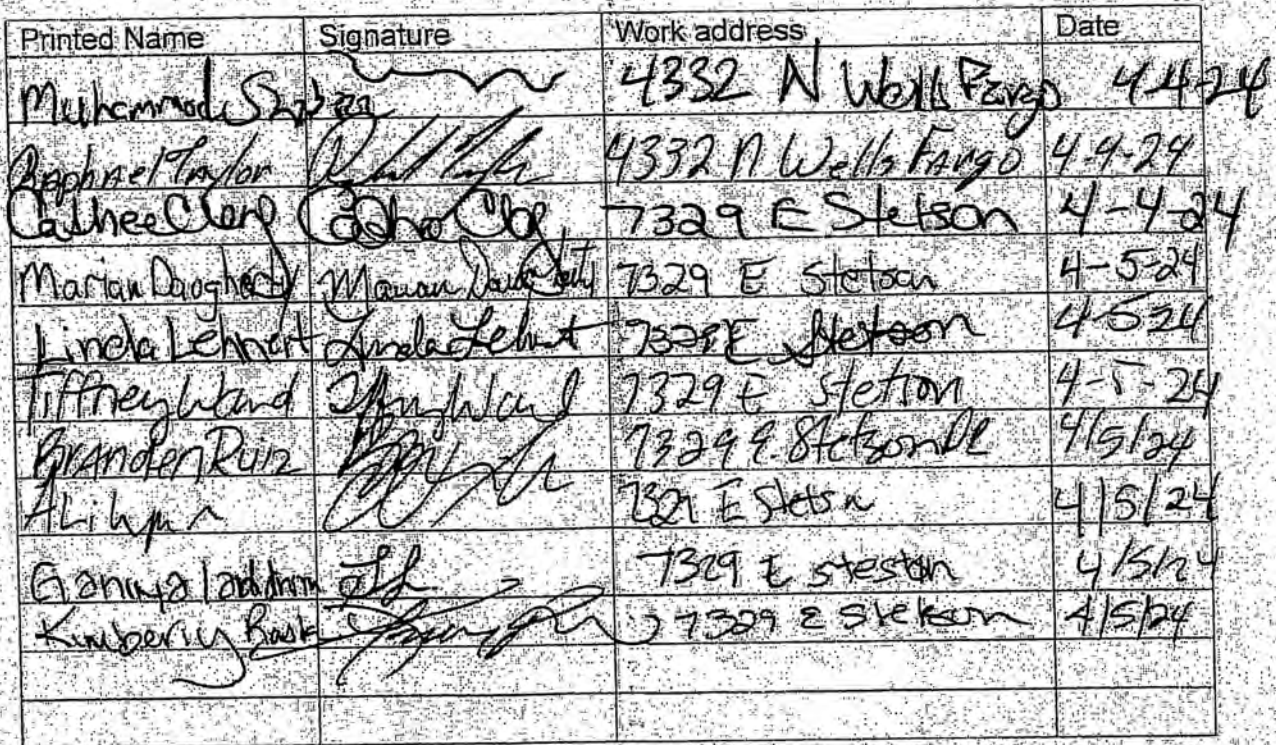 Printed Name Signature Work address Date
Muhammad 4332 N Wells Fargo 4-4-24
Raphael Taylor 4332 N Wells Fargo 4-4-24
Cathee 7329 E Stetson 4-4-24
Marian Daogherty Marian Daugherty 7329 E Stetson 4-5-24
Linda Lehnert Linda Lehnert 7329 E Stetson 4-5-24
Tiffney Ward Tiffney Ward 7329 E Stetson 4-5-24
Branden Ruiz 7329 E. Stetson Dr 4/5/24
Ali 7329 E Stetson 4/5/24
7329 E steston 4/5/24
Kimberly 7329 E Stetson 4/5/24